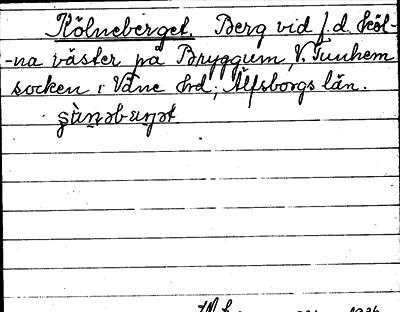 Kölneberget. Berg vid f.d. Köl-
-na väster på Bryggum, V. Tunhem
socken i Väne hd; Älfsborgs län.